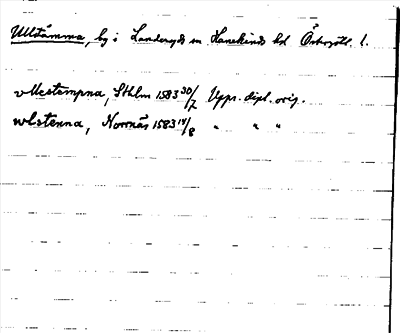 Ullstämma, by i Landeryds sn Hanekinds hd Östergötl. l.
vllestempna, Sthlm 1583 30/7 Upps. dipl. orig.
wlstenna, Norrnäs 1583 14/8 " " "